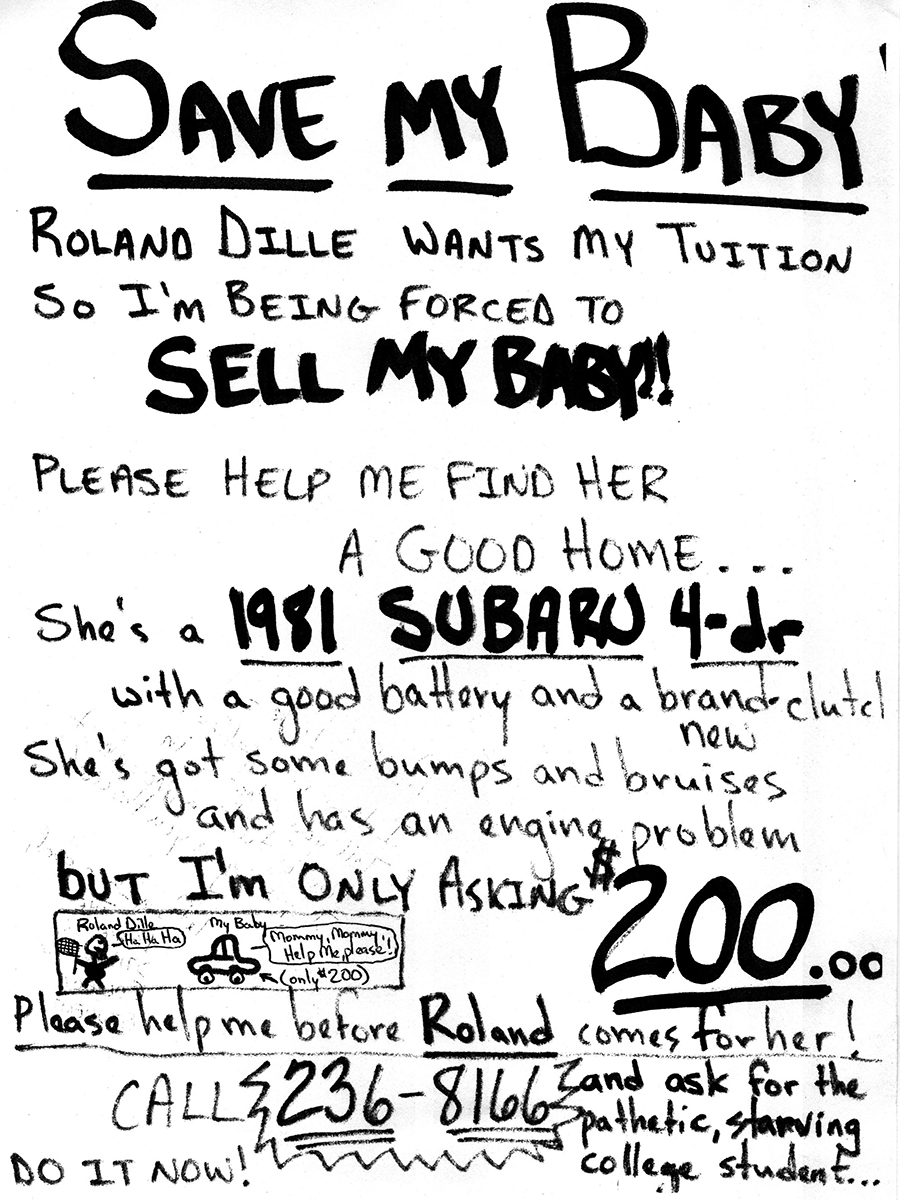 SAVE MY BABY
ROLAND DILLE WANTS MY TUITION
SO I'M BEING FORCED TO
SELL MY BABY!!
PLEASE HELP ME FIND HER
A GOOD HOME...
She's a 1981 SUBARU 4-dr
with a good battery and a brand-clutcl
new
She's got some bumps and bruises
and has an engine problem
but I'm ONLY ASKING $200.00
Roland Dille
Ha Ha Ha
My Baby
Mommy, Mommy
Help Me, please!
(only $200)
Please help me before Roland comes for her!
CALL 236-8166
and ask for the
pathetic, starving
college student...
DO IT NOW!